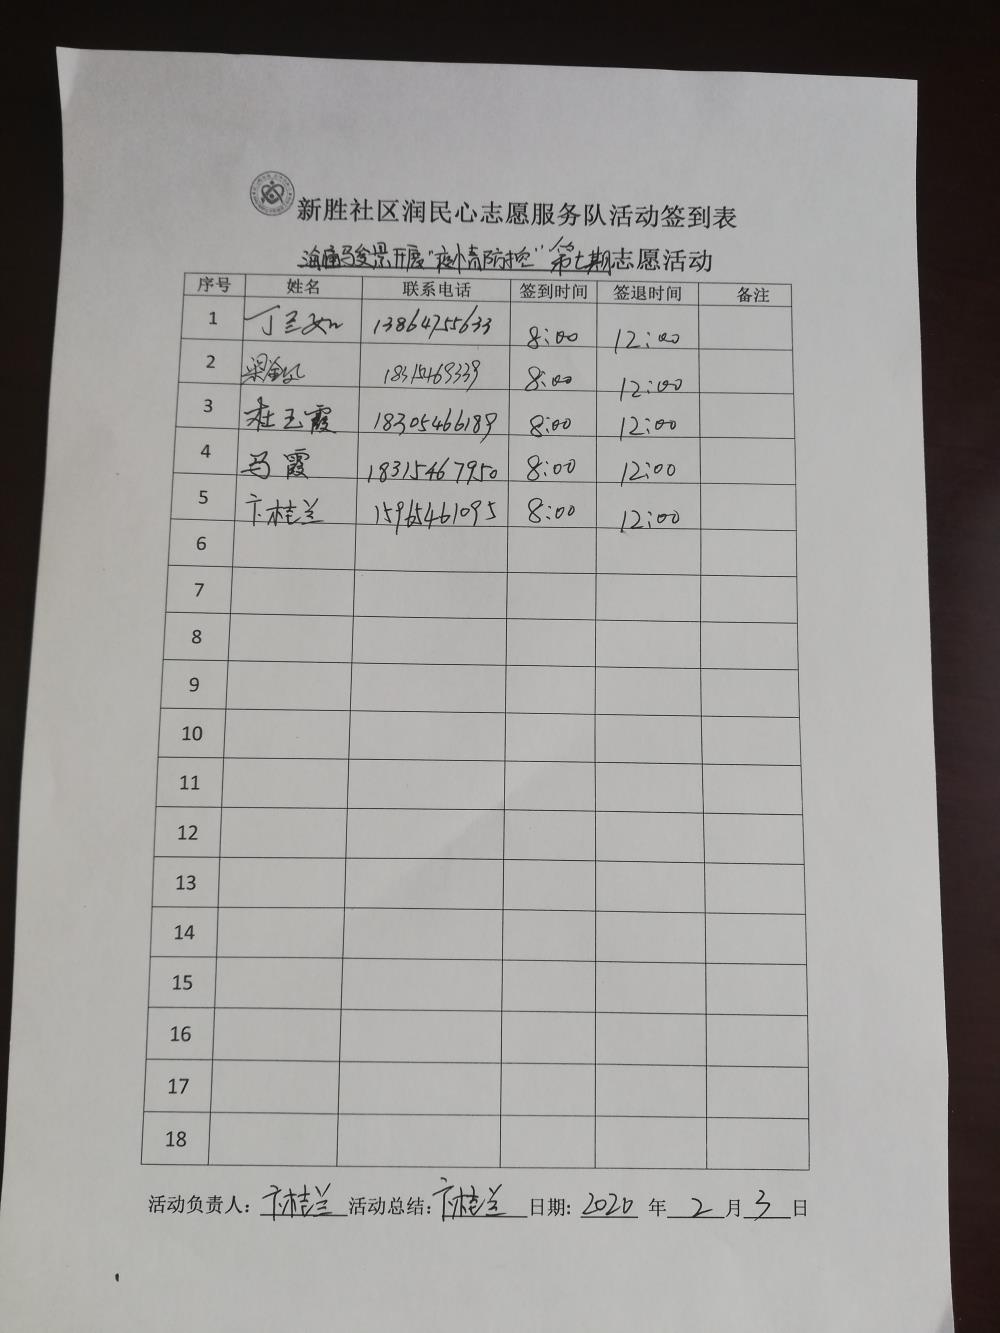 新胜社区润民心志愿服务队活动签到表
开展"疫情防控"第七期志愿活动
序号 姓名 联系电话 签到时间 签退时间 备注
1 丁兰 13864755633 8:00 12:00
2 梁金 8:00 12:00
3 杜玉霞 18305466189 8:00 12:00
4 马霞 18315467950 8:00 12:00
5 卞桂兰 15965461095 8:00 12:00
6
7
8
9
10
11
12
13
14
15
16
17
18
活动负责人: 卞桂兰 活动总结: 卞桂兰 日期: 2020 年 2 月 3 日